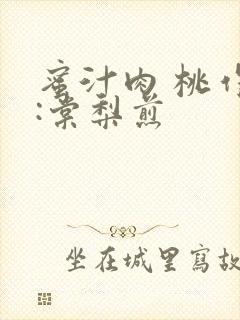 蜜汁肉桃作
:棠梨煎
坐在城里寫故